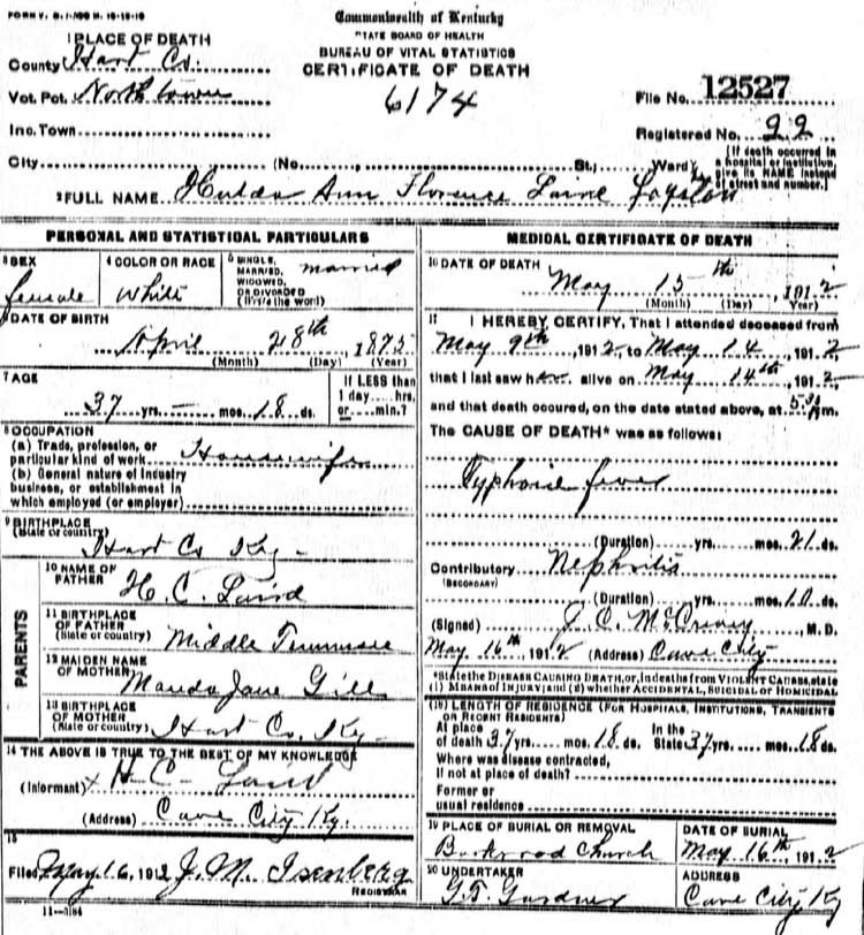 FORM V. S. 1-100 M. 10-18-10
Commonwealth of Kentucky
STATE BOARD OF HEALTH
BUREAU OF VITAL STATISTICS
CERTIFICATE OF DEATH
6174
1 PLACE OF DEATH
County Hart Co.
Vot. Pct. Northtown
Inc. Town
City (No. , St.; Ward)
File No. 12527
Registered No. 22
(If death occurred in a hospital or institution, give its NAME instead of street and number.)
2 FULL NAME Hulda Ann Florence Logsdon
PERSONAL AND STATISTICAL PARTICULARS
3 SEX
female
4 COLOR OR RACE
White
5 SINGLE, MARRIED, WIDOWED, OR DIVORCED (Write the word)
married
6 DATE OF BIRTH
April 28th, 1875
(Month) (Day) (Year)
7 AGE
37 yrs. — mos. 18 ds.
If LESS than 1 day.....hrs. or.....min.?
8 OCCUPATION
(a) Trade, profession, or particular kind of work Housewife
(b) General nature of industry business, or establishment in which employed (or employer)
9 BIRTHPLACE
(State or country)
Hart Co Ky -
PARENTS
10 NAME OF FATHER H. C. Laird
11 BIRTHPLACE OF FATHER (State or country) Middle Tennessee
12 MAIDEN NAME OF MOTHER Manda Jane Gill
13 BIRTHPLACE OF MOTHER (State or country) Hart Co. Ky -
14 THE ABOVE IS TRUE TO THE BEST OF MY KNOWLEDGE
(Informant) x H. C. Laird
(Address) Cave City Ky.
15
Filed May 16, 1912 J. M. Isenberg
REGISTRAR
11-3184
MEDICAL CERTIFICATE OF DEATH
16 DATE OF DEATH
May 15th, 1912
(Month) (Day) (Year)
17 I HEREBY CERTIFY, That I attended deceased from
May 9th, 1912, to May 14, 1912,
that I last saw her alive on May 14th, 1912,
and that death occured, on the date stated above, at m.
The CAUSE OF DEATH* was as follows:
Typhoid fever
(Duration) yrs. mos. 21 ds.
Contributory Nephritis
(SECONDARY)
(Duration) yrs. mos. 10 ds.
(Signed) , M. D.
May 16th, 1912 (Address) Cave City
*State the DISEASE CAUSING DEATH, or, in deaths from VIOLENT CAUSES, state
(1) MEANS OF INJURY; and (2) whether ACCIDENTAL, SUICIDAL or HOMICIDAL
(18) LENGTH OF RESIDENCE (FOR HOSPITALS, INSTITUTIONS, TRANSIENTS OR RECENT RESIDENTS)
At place of death 37 yrs. mos. 18 ds. In the State 37 yrs. mos. 18 ds.
Where was disease contracted,
If not at place of death?
Former or
usual residence
19 PLACE OF BURIAL OR REMOVAL
Church
DATE OF BURIAL
May 16th, 1912
20 UNDERTAKER
G. T. Gardner
ADDRESS
Cave City Ky